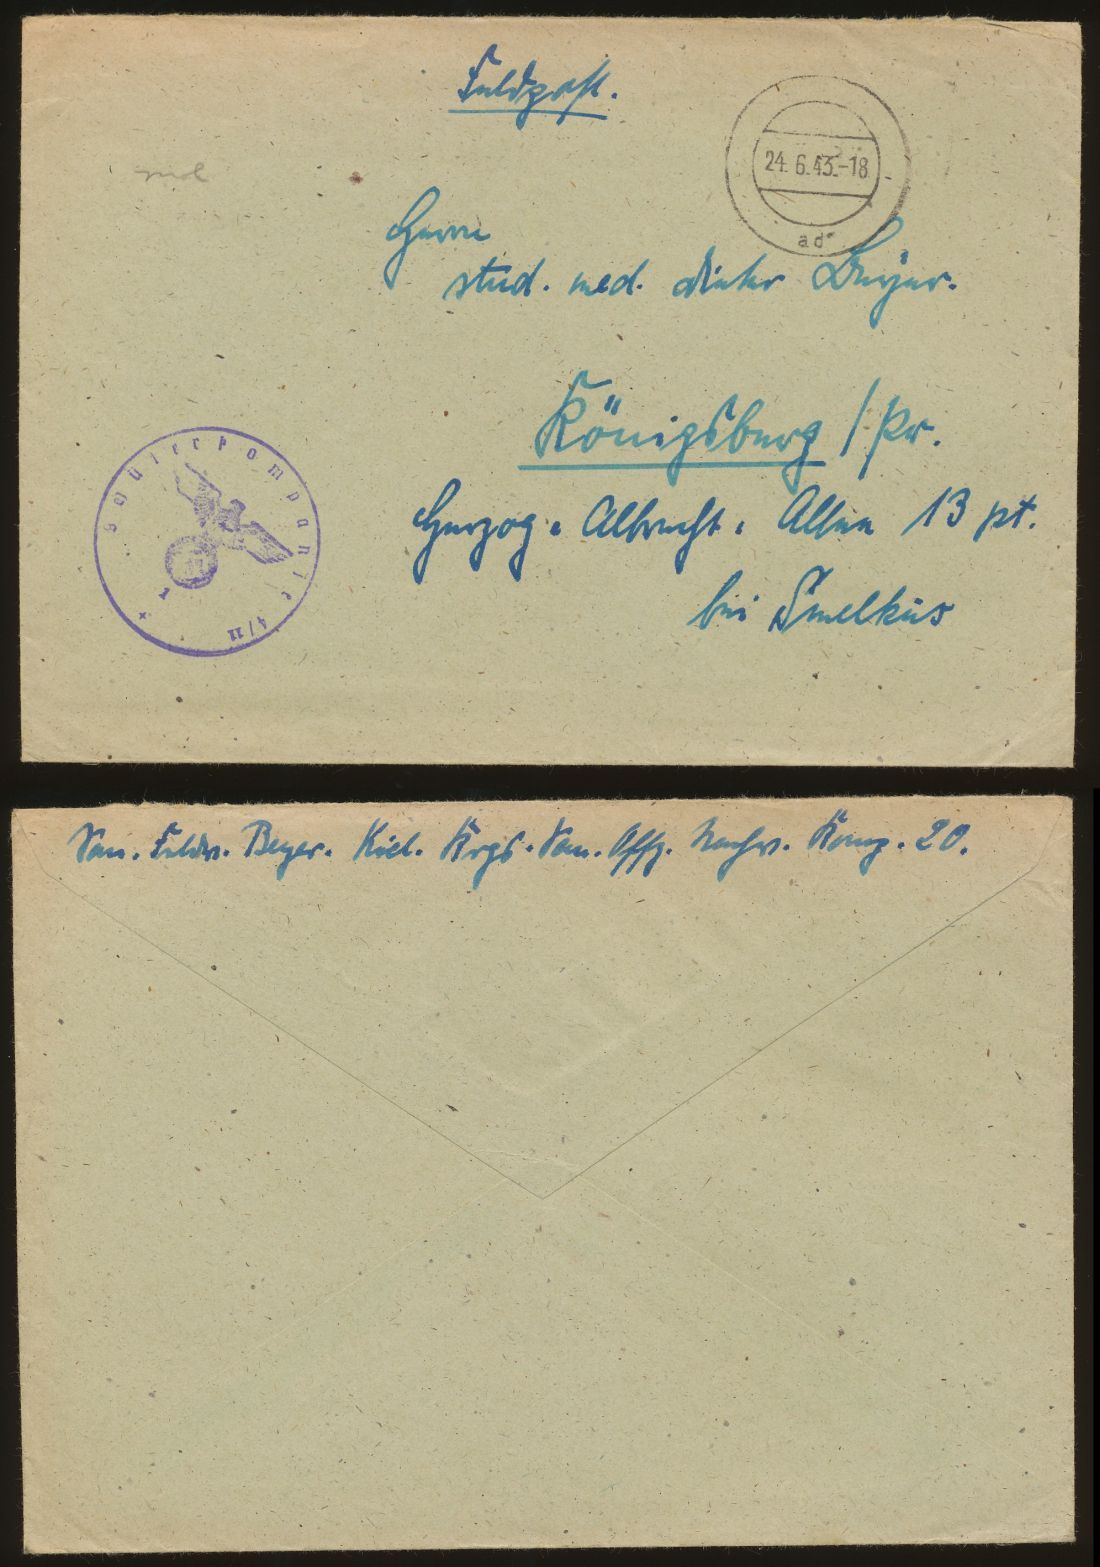 Feldpost.
24.6.43.-18
ad
Herrn
stud. med. Dieter Beyer.
Königsberg / Pr.
Herzog-Albrecht-Allee 13 pt.
bei Smelkus
Schülerkompanie 4/II
1
San. Feldw. Beyer. Kiel. Krgs. San. Offz. Nachw. Komp. 20.